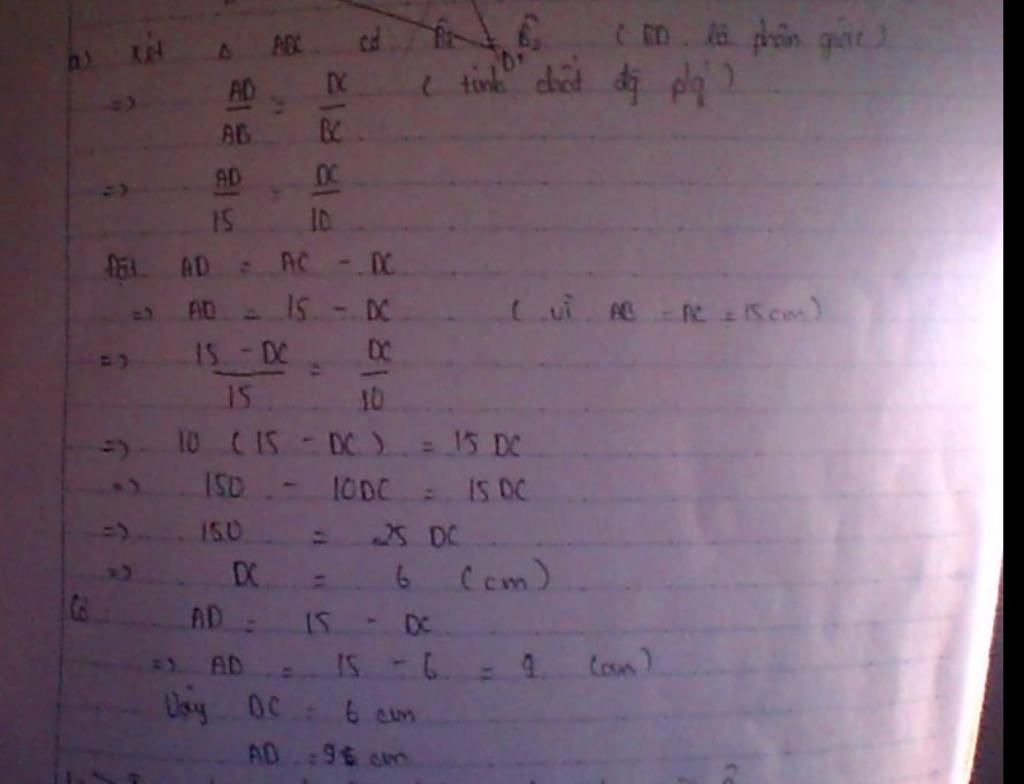 a) Xét Δ ABC có B̂₁ = B̂₂ (BD là phân giác)
=> AD/AB = DC/BC (tính chất đg p/g)
=> AD/15 = DC/10
Đặt AD = AC - DC
=> AD = 15 - DC (vì AB = AC = 15 cm)
=> 15 - DC/15 = DC/10
=> 10 (15 - DC) = 15 DC
=> 150 - 10DC = 15 DC
=> 150 = 25 DC
=> DC = 6 (cm)
Có AD = 15 - DC
=> AD = 15 - 6 = 9 (cm)
Vậy DC = 6 cm
AD = 9 cm